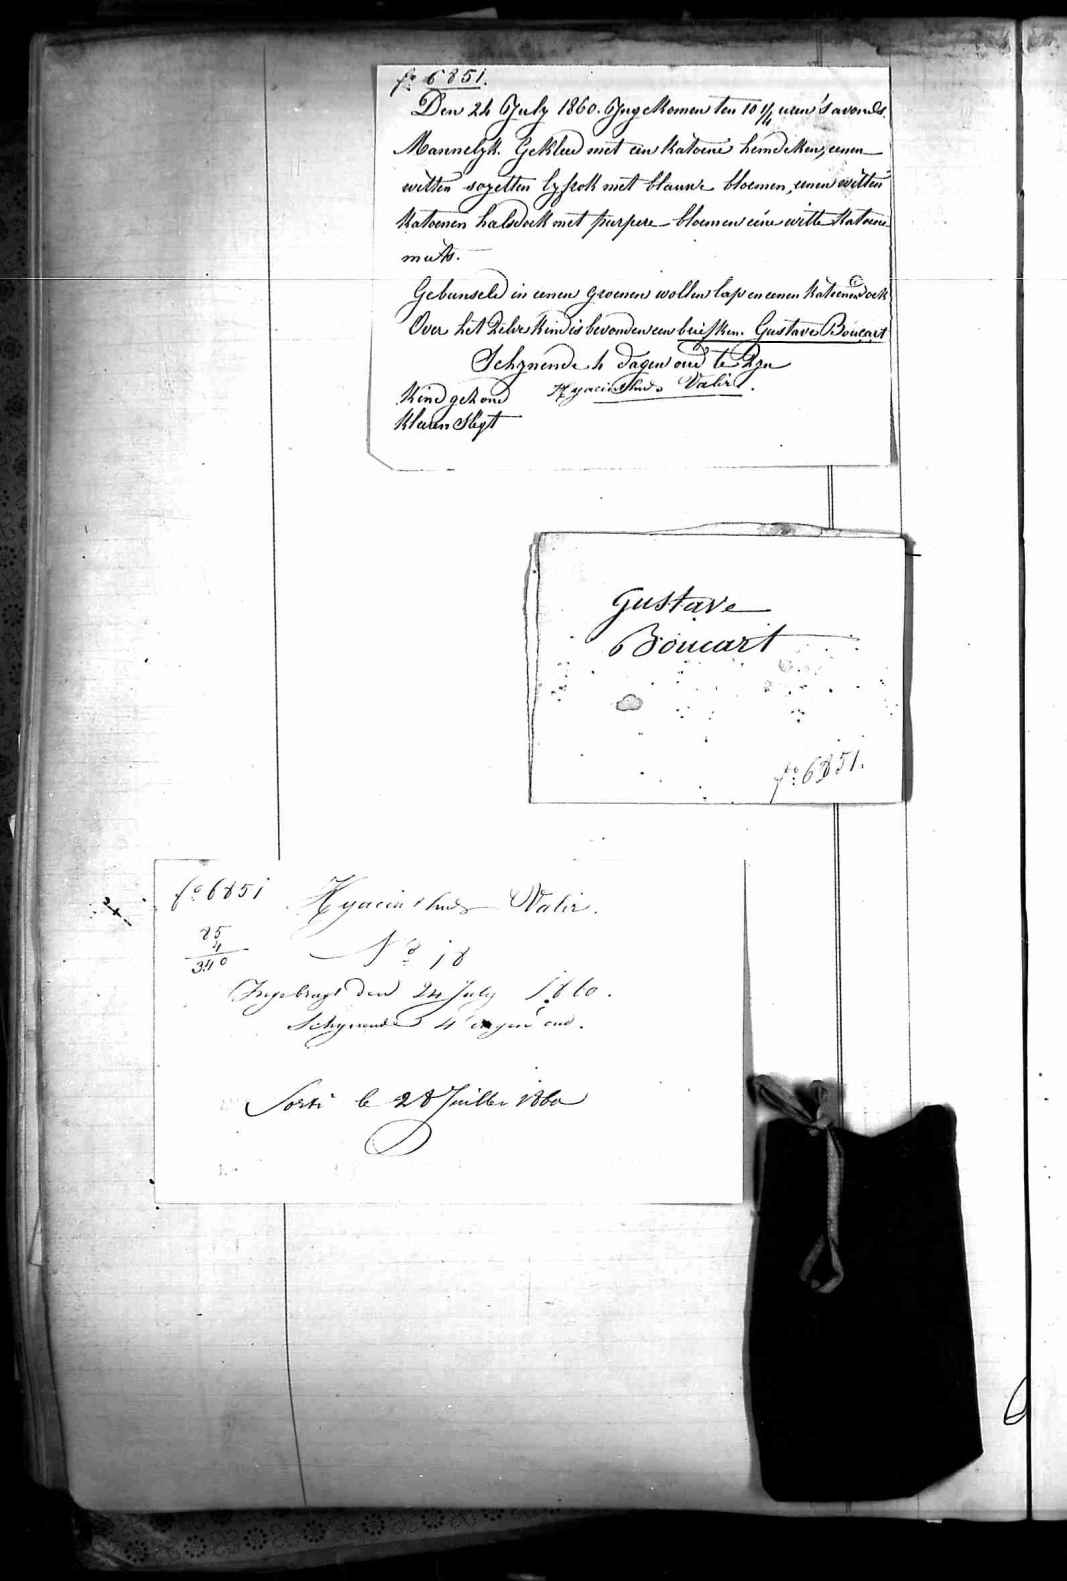 fo 6851.
Den 24 July 1860. Ingekomen ten 10 1/4 uren 's avonds.
Mannelyk. Gekleed met een katoene hemdeken, eenen
witten sayetten lyfrok met blauwe bloemen, eenen witten
katoenen halsdoek met purpere bloemen eene witte katoene
muts.
Gebunseld in eenen groenen wollen lap en eenen katoenen doek
Over het zelve kind is bevonden een briefken. Gustave Boucart
Schynende 4 dagen oud te zyn
Kind gezond Hyacinthus Valir.
kleeren slegt
Gustave
Boucart
fo 6851.
fo 6851 Hyacinthus Valir.
85
4
340
No 18
Ingebragt den 24 July 1860.
Schynende 4 dagen oud.
Sorti le 28 Juillet 1860